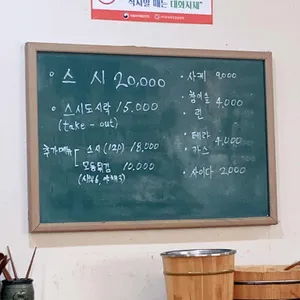 식사할 때는 대화자제
· 스시 20,000
· 스시도시락 15,000
(take-out)
추가메뉴 [ 스시 (12P) 18,000
모듬튀김 10,000
(새우6, 야채3)
· 사케 9,000
· 참이슬 4,000
· 린
· 테라 4,000
· 카스
· 사이다 2,000